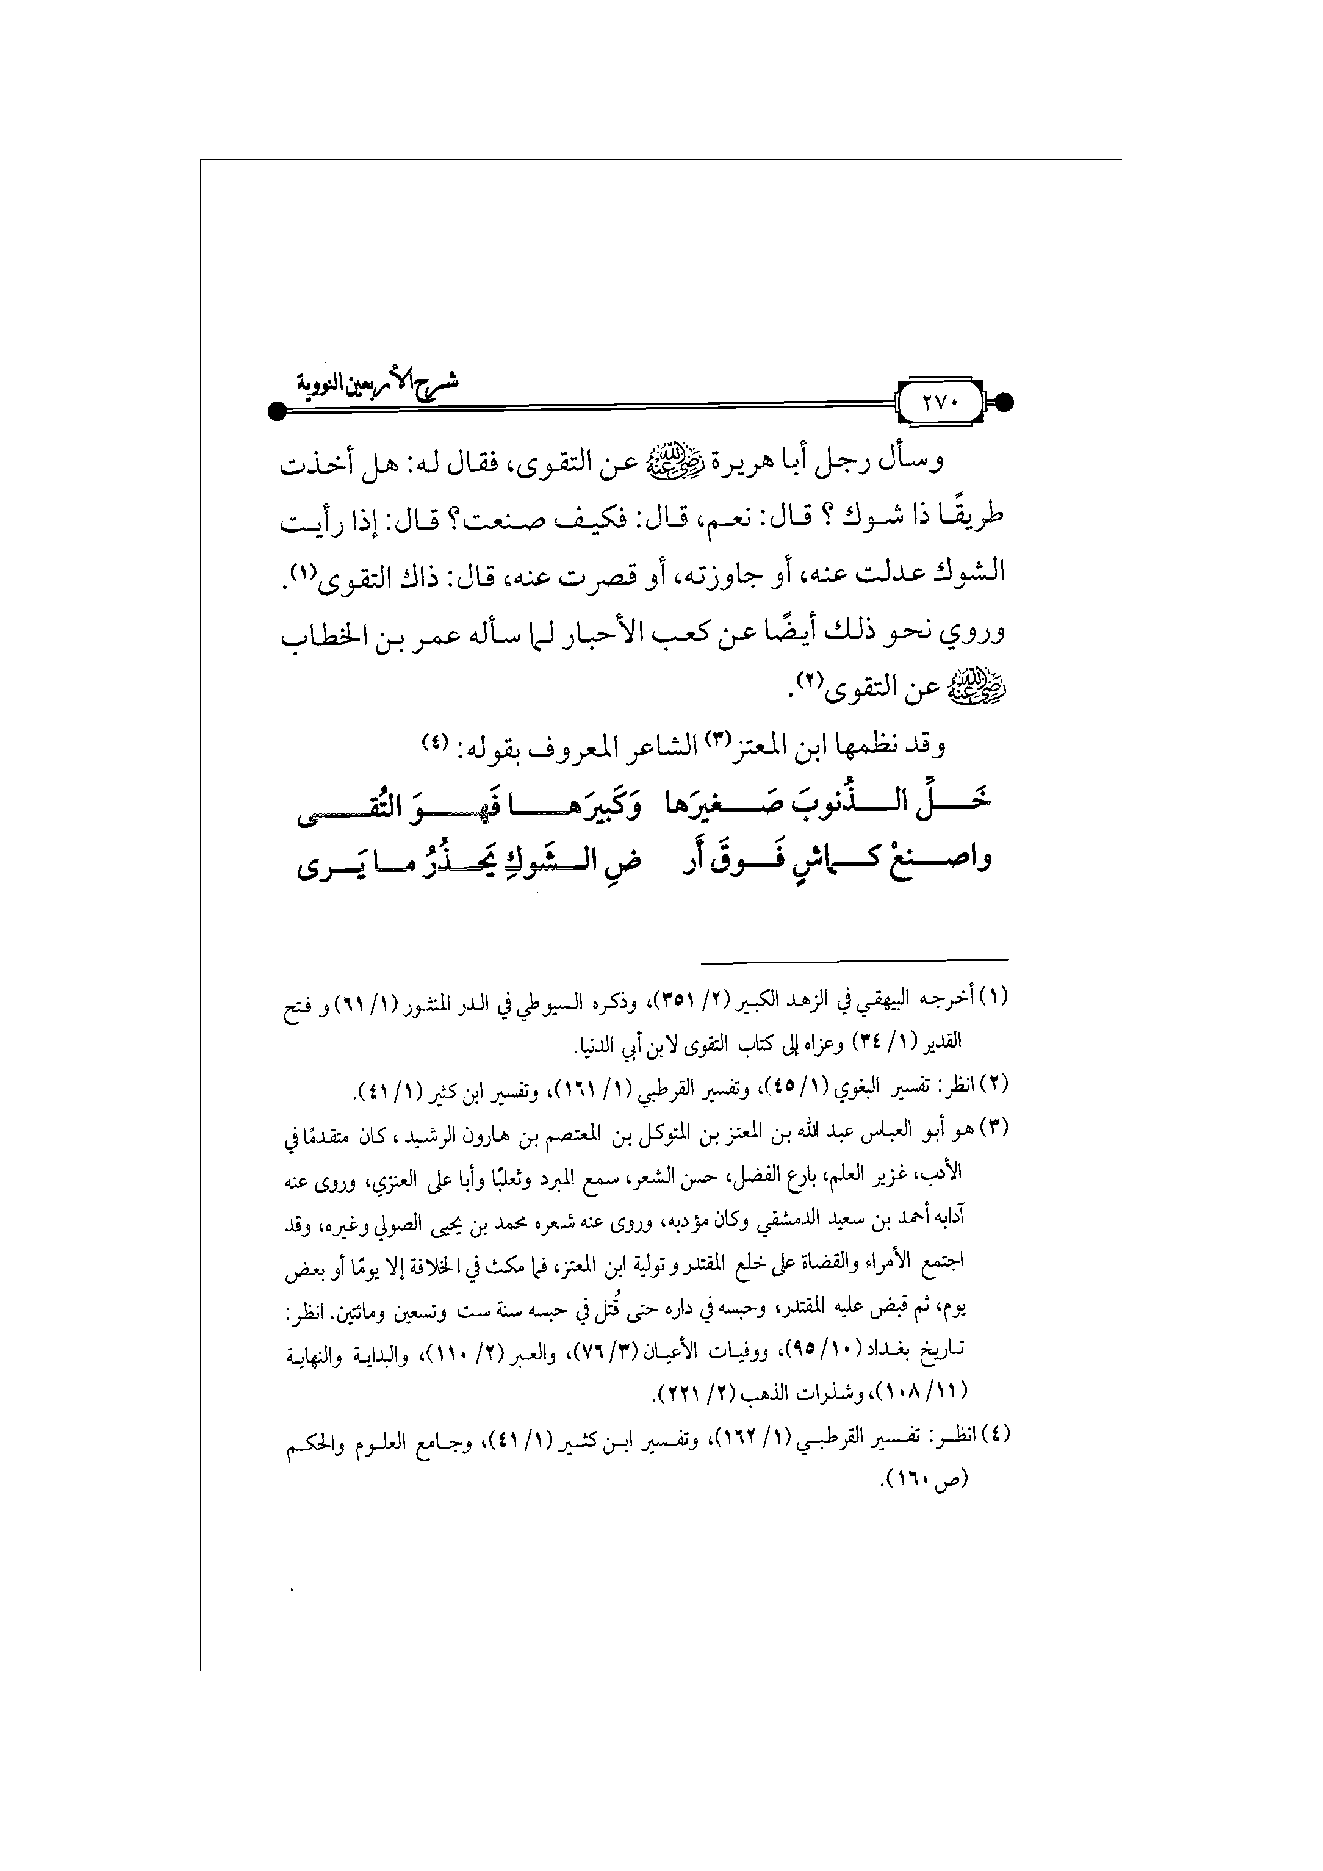 شرح الأربعين النووية
٢٧٠
وسأل رجل أبا هريرة رضي الله عنه عن التقوى، فقال له: هل أخذت
طريقًا ذا شوك ؟ قال: نعم، قال: فكيف صنعت؟ قال: إذا رأيت
الشوك عدلت عنه، أو جاوزته، أو قصرت عنه، قال: ذاك التقوى(١).
وروي نحو ذلك أيضًا عن كعب الأحبار لما سأله عمر بن الخطاب
رضي الله عنه عن التقوى(٢).
وقد نظمها ابن المعتز(٣) الشاعر المعروف بقوله: (٤)
خَلِّ الذُّنوبَ صَغيرَها وَكَبيرَها فَهوَ التُقى
واصنعْ كماشٍ فَوقَ أَر ضِ الشَوكِ يَحذُرُ ما يَرى
(١) أخرجه البيهقي في الزهد الكبير (٢/ ٣٥١)، وذكره السيوطي في الدر المنثور (١/ ٦١) و فتح
القدير (١/ ٣٤) وعزاه إلى كتاب التقوى لابن أبي الدنيا.
(٢) انظر: تفسير البغوي (١/ ٤٥)، وتفسير القرطبي (١/ ١٦١)، وتفسير ابن كثير (١/ ٤١).
(٣) هو أبو العباس عبد الله بن المعتز بن المتوكل بن المعتصم بن هارون الرشيد ، كان متقدمًا في
الأدب، غزير العلم، بارع الفضل، حسن الشعر، سمع المبرد وثعلبًا وأبا على العنزي، وروى عنه
آدابه أحمد بن سعيد الدمشقي وكان مؤدبه، وروى عنه شعره محمد بن يحيى الصولي وغيره، وقد
اجتمع الأمراء والقضاة على خلع المقتدر و تولية ابن المعتز، فما مكث في الخلافة إلا يومًا أو بعض
يوم، ثم قبض عليه المقتدر، وحبسه في داره حتى قُتل في حبسه سنة ست وتسعين ومائتين. انظر:
تاريخ بغداد (١٠/ ٩٥)، ووفيات الأعيان (٣/ ٧٦)، والعبر (٢/ ١١٠)، والبداية والنهاية
(١١/ ١٠٨)، وشذرات الذهب (٢/ ٢٢١).
(٤) انظر: تفسير القرطبي (١/ ١٦٢)، وتفسير ابن كثير (١/ ٤١)، وجامع العلوم والحكم
(ص ١٦٠).